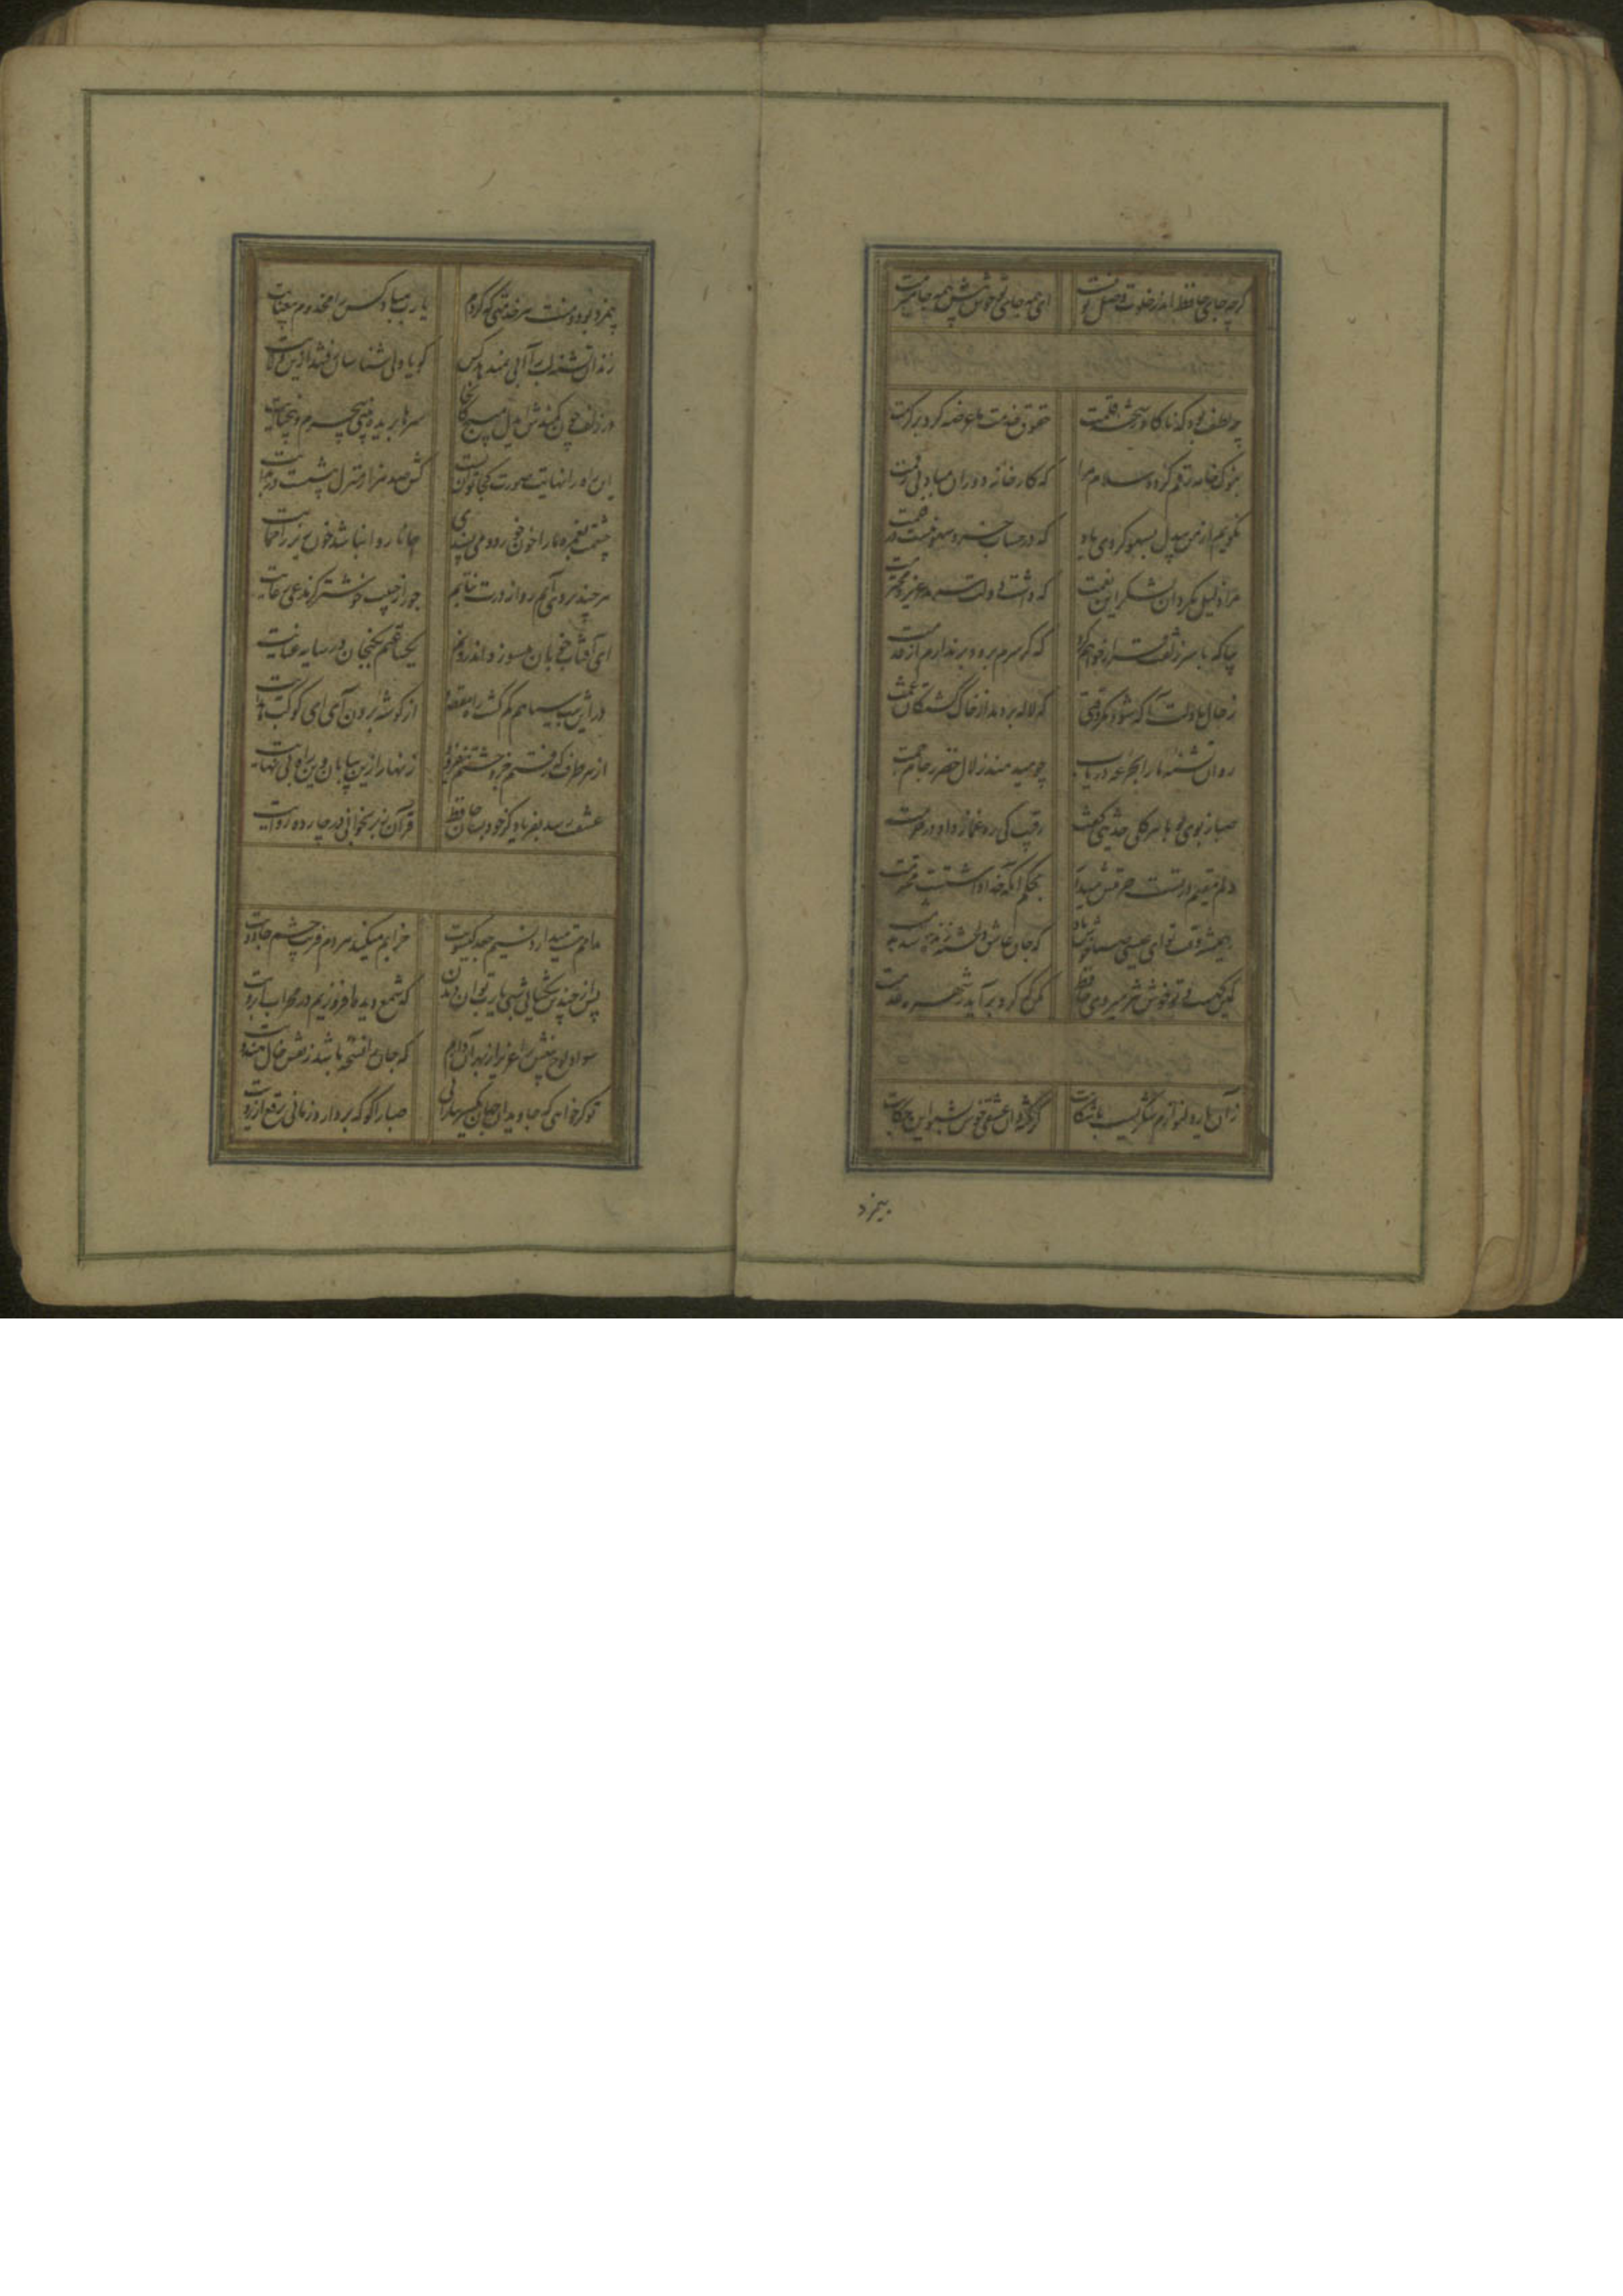 گرچه جای حافظ اندر خلوت وصل تو نیست
ای همه جای تو خوش پیش همه جا میرمت
چه لطف بود که ناگاه رشحه قلمت
حقوق خدمت ما عرضه کرد بر کرمت
بنوک خامه رقم کرده سلام مرا
که کارخانه دوران مباد بی رقمت
نگویم از من بیدل بسهو کردی یاد
که در حساب خرد سهو نیست در قلمت
مرا ذلیل مگردان بشکر این نعمت
که داشت دولت سرمد عزیز و محترمت
بیا که با سر زلفت قرار خواهم کرد
که گر سرم برود برندارم از قدمت
ز حال ما دلت آگه شود مگر وقتی
که لاله بردمد از خاک کشتگان غمت
روان تشنه ما را بجرعه دریاب
چو میدهند زلال خضر ز جام جمت
صبا ز بوی تو با هر گلی حدیثی گفت
رقیب کی ره غماز داد در حرمت
دلم مقیم در تست حرمتش میدار
بحکم آنکه خدا داشتست محترمت
همیشه وقت تو ای عیسی صبا خوش باد
که جان عاشق دلخسته زنده شد بدمت
کمین گهست و تو خوش تیز میروی حافظ
مکن که گرد برآید ز شهره عدمت
زان یار دلنوازم شکریست با شکایت
گر نکته دان عشقی خوش بشنو این حکایت
بیمزد
بیمزد بود و منت هر خدمتی که کردم
یا رب مباد کس را مخدوم بیعنایت
رندان تشنه لب را آبی نمیدهد کس
گویا ولی شناسان رفتند ازین ولایت
در زلف چون کمندش ایدل مپیچ کانجا
سرها بریده بینی بیجرم و بیجنایت
این راه را نهایت صورت کجا توان بست
کش صد هزار منزل بیشست در بدایت
چشمت بغمزه ما را خون خورد و می پسندی
جانا روا نباشد خونریز را حمایت
هر چند بردی آبم رو از درت نتابم
جور از حبیب خوشتر کز مدعی رعایت
ای آفتاب خوبان میسوزد اندرونم
یکساعتم بگنجان در سایه عنایت
در این شب سیاهم گم گشت راه مقصود
از گوشه برون آی ای کوکب هدایت
از هر طرف که رفتم جز وحشتم نیفزود
زنهار ازین بیابان وین راه بی نهایت
عشقت رسد بفریاد گر خود بسان حافظ
قرآن ز بر بخوانی در چارده روایت
مدامم مست میدارد نسیم جعد گیسویت
خرابم میکند هر دم فریب چشم جادویت
پس از چندین شکیبائی شبی یا رب توان دیدن
که شمع دیده افروزیم در محراب ابرویت
سواد لوح بینش را عزیز از بهر آن دارم
که جان را نسخه باشد ز نقش خال هندویت
تو گر خواهی که جاویدان جهان یکسر بیارائی
صبا را گو که بردارد زمانی برقع از رویت